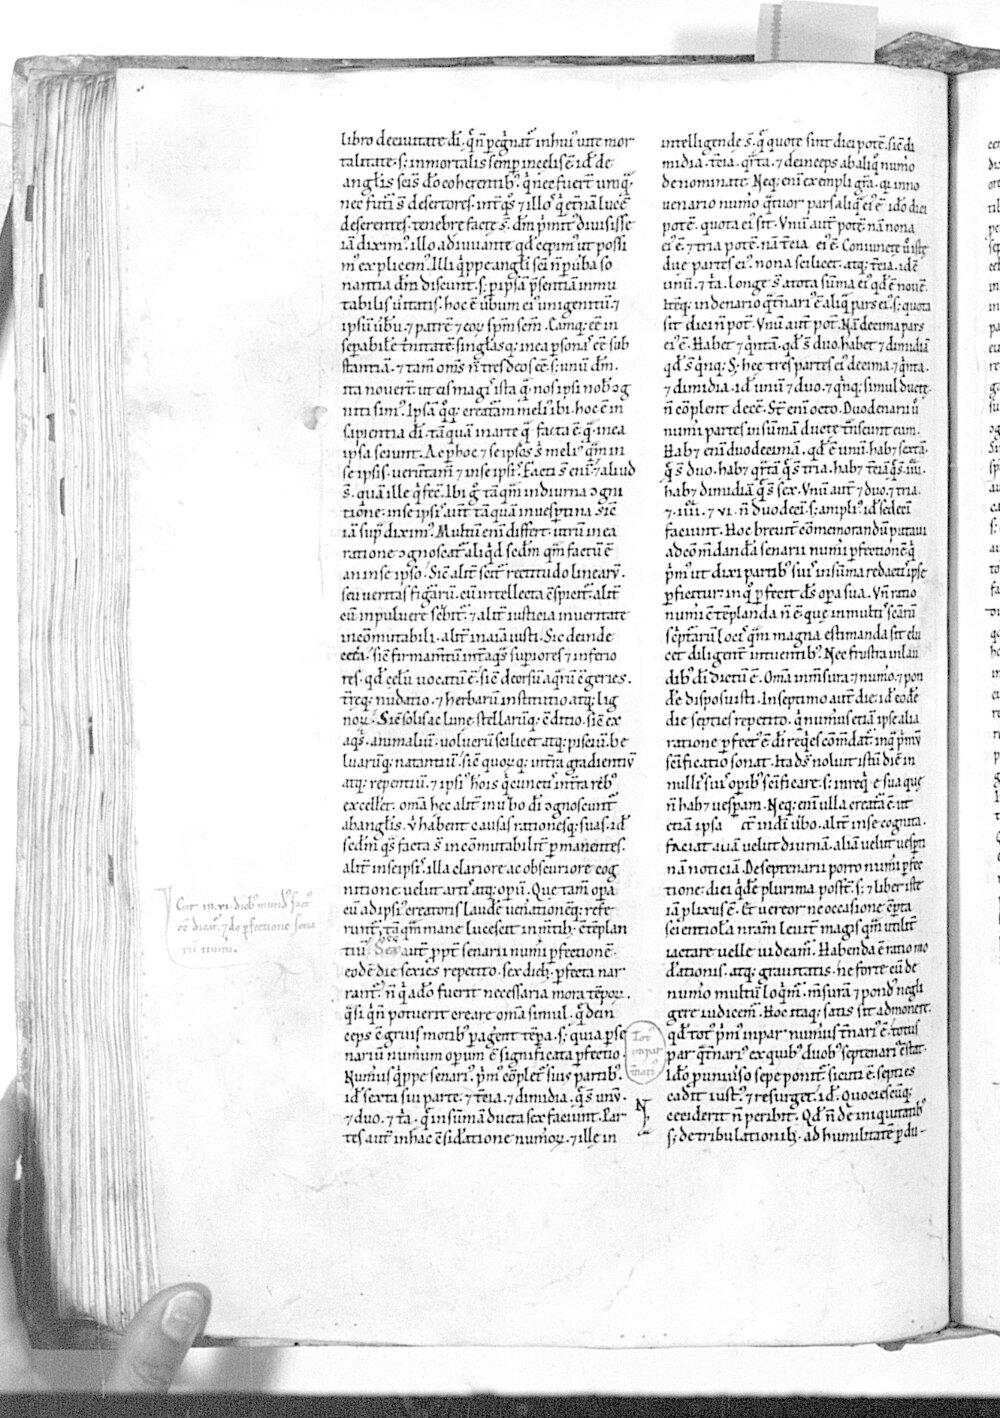 libro deciuitate dī. q̄n̄ pegͥnat᷑ inhuiꝰ uite mor
talitate. s; inmortalis semp incelis ē. id ē. de
anglis sc̄is dō coherentibꝫ. q̄ nec fuert̄ umq̄.
nec futi s̄ desertores. int̄ qͦs ⁊ illoſ q̄ et̄nā lucē
deserentes. tenebre facte s̄. dm̄ pͥmit᷑ diuisisse
iā diximꝰ. illo adiuuante qd̄ cepimꝰ ut possu
mꝰ explicemꝰ. Illi q̄ppe angli sc̄i n̄ p̄ uba so
nantia dm̄ discunt. s; p ipsā p̄sentiā inmu
tabilis ūitatis. hoc ē ūbum eiꝰ unigenitū. ⁊
ipsū ūbū. ⁊ patrē ⁊ eoꝝ sp̄m sc̄m. Eamq; eē in
sepabilē t̄nitatē. singlasq; in ea psonas eē sub
stantiā. ⁊ tam̄ om̄s n̄ tres deos eē. s; unū dm̄.
ita nouert̄. ut eis magis ista q̄ nos ipsi nobꝫ cog
niti simꝰ. Ipsā qͦq; creaturam meliꝰ ibi. hoc ē in
sapientia dī. tāquā in arte q̄ facta ē. q̄ in ea
ipsa sciunt. Ac p hoc ⁊ se ipsos ibi meliꝰ q̄m in
se ipsis. uerūtam̄ ⁊ in se ipsis. Facti s̄ eni ⁊ aliud
s̄. quā ille q̄ fec̄. Ibi ḡ tāq̄m in diurna cogni
tione. in se ipsis aut̄ tāquā in uesp̄tina. sic̄
iā sup̄ diximꝰ. Multū eni differt. utrū in ea
ratione cognoscat᷑ aliqͥd scdm̄ q̄m factū ē.
an in se ipso. Sic̄ alit̄ scit᷑ rectitudo linearꝝ.
seu ueritas figarū. cū intellecta c̄spicit᷑. alit̄
cū in puluere sc̄bit᷑. ⁊ alit̄ iusticia in ueritate
incōmutabili. alit̄ in aīa iusti. Sic deinde
cet̄a. sic̄ firmamtū int̄ aqͣs supiores ⁊ inferio
res. qd̄ celū uocatū ē. sic̄ deorsū aqͣrū c̄geries.
t̄req; nudatio. ⁊ herbarū institutio atq; lig
noꝝ. Sic̄ solis ac lune. stellarūq; c̄ditio. sic̄ ex
aqͥs. animaliū. uolucrū scilicet atq; pisciū. be
luarūq; natantiū. sic̄ quorūq; int̄ra gradientiū
atq; repentiū. ⁊ ipsiꝰ hoīs q̄ cunctis int̄ra rebꝫ
excellet. om̄a hec alit̄ in ūbo dī cognoscunt᷑
ab anglis. ubi habent causas rationesq; suas. id ē
scdm̄ qͣs facta s̄ incōmutabilit̄ pmanentes.
alit̄ in se ipsis. illa clariore ac obscuriore cog
nitione. uelut artis atq; opum̄. Que tam̄ opa
cū ad ipsiꝰ creatoris laudē uen̄ationēq; refe
runt᷑. tāq̄m mane lucescit in mtibꝫ c̄templan
tiū. Sex aut̄ ꝓpt̄ senarii num̄i pfectionē.
eodē die sexies repetito. sex diebꝫ pfecta nar
rant᷑. n̄ q̄a dō fuerit necessaria mora tēpoꝝ.
q̄si q̄ n̄ potuerit creare om̄a simul. q̄ dein
ceps c̄gruis motibꝫ pagent tēpa. s; quia p se
nariū num̄um opum̄ ē significata pfectio.
Num̄us q̄ppe senariꝰ. pͥmꝰ cōplet᷑ suis partibꝫ.
id ē sexta sui parte. ⁊ t̄cia. ⁊ dimidia. q̄ s̄ unū.
⁊ duo. ⁊ tͥa. q̄ in sūmā ducta sex faciunt. Par
tes aut̄ in hac c̄sid̄atione num̄oꝝ. ⁊ ille in
Cur in .vi. diebꝫ mundꝰ factꝰ
eē dicat᷑. ⁊ de pfectione sena
rii num̄i.
intelligende s̄. q̄ quote sint dici potē. sic̄ di
midia. t̄cia. qͣrta. ⁊ deinceps ab aliqͦ num̄o
denominate. Neq; eni exempli gr̄a. qͥ in no
uenario num̄o qͣtuor pars aliq̄ eiꝰ ē. idō dici
potē. quota eiꝰ sit. Vnū aut̄ potē. nā nona
eiꝰ ē. ⁊ tria potē. nā t̄cia eiꝰ ē. Coniuncte ū iste
due partes eiꝰ. nona scilicet. atq; t̄cia. id ē
unū. ⁊ tͥa. longe s̄ a tota sūma eiꝰ qd̄ ē nouē.
Itēq; in denario qͣt̄nariꝰ ē aliq̄ pars eiꝰ. s; quota
sit dici n̄ pot̄. Vnū aut̄ pot̄. Nā decima pars
eiꝰ ē. Habet ⁊ qͥntā. qd̄ s̄ duo. habet ⁊ dimidiā
qd̄ s̄ qͥnq;. S; hee tres partes eiꝰ decima. ⁊ qͥnta.
⁊ dimidia. id ē unū ⁊ duo. ⁊ qͥnq; simul ducte.
n̄ cōplent decē. St̄ eni octo. Duodenarii ū
num̄i partes in sūmam ducte t̄nseunt eum.
Habꝫ eni duodecimā. qd̄ ē unū. habꝫ sextā.
q̄ s̄ duo. habꝫ qͣrtā q̄ s̄ tria. habꝫ t̄ciā q̄ s̄ .iiii.
habꝫ dimidiā q̄ s̄ sex. Vnū aut̄ ⁊ duo. ⁊ tria.
⁊ .iiii. ⁊ vi. n̄ duodeci. s; ampliꝰ id ē sedeci
faciunt. Hoc breuit̄ cōmemorandū putaui
ad cōmdandā senarii num̄i pfectionē. q̄
pͥmꝰ ut dixi partibꝫ suis in sūma redactis ipse
pficitur. in qͦ pfecit ds̄ opa sua. Vn̄ ratio
num̄i c̄tēplanda n̄ ē. que in multis sc̄arū
sc̄ptarū locis q̄m magna estimanda sit elu
cet diligent̄ intuentibꝫ. Nec frustra in lau
dibꝫ dī dictū ē. Om̄a in m̄sura. ⁊ num̄o. ⁊ pon
d̄e disposuisti. In septimo aut̄ die. id ē eodē
die septies repetito. q̄ num̄us etiā ipse alia
ratione pfectꝰ ē. dī reqͥes cōmdat᷑. in qͣ pͥmū
sc̄ificatio sonat. Ita ds̄ noluit istū diē in
nullis suis opibꝫ sc̄ificare. s; in req̄e sua que
n̄ habꝫ uespam. Neq; eni ulla creatā ē. ut
etiā ipsa ct̄ in dī ūbo. alit̄ in se cognita.
faciat aliā uelut diurnā. aliā uelut uespti
nā noticiā. De septenarii porro num̄i pfec
tione. dici qͥdē plurima posst̄. s; ⁊ liber iste
iā plixus ē. Et uereor ne occasione c̄pta
scientiola nr̄am leuit̄ magis q̄m utilit̄
iactare uelle uideam᷑. Habenda ē ratio mo
d̄ationis. atq; grauitatis. ne forte cū de
num̄o multū loqͥm᷑. m̄surā ⁊ pondꝰ negli
gere iudicem᷑. Hoc itaq; satis sit admonere.
qd̄ totꝰ pͥmꝰ inpar num̄us t̄nariꝰ ē. totus
par qͣt̄nariꝰ. ex quibꝫ duobꝫ septenariꝰ c̄stat.
idō p uniūso sepe ponit᷑. sicuti ē. septies
cadit iustꝰ. ⁊ resurget. id ē. Quociescūq;
ceciderit n̄ peribit. Qd̄ n̄ de iniquitatibꝫ
s; de tribulationibꝫ. ad humilitatē pdu-
Totꝰ
inpar
t̄nariꝰ